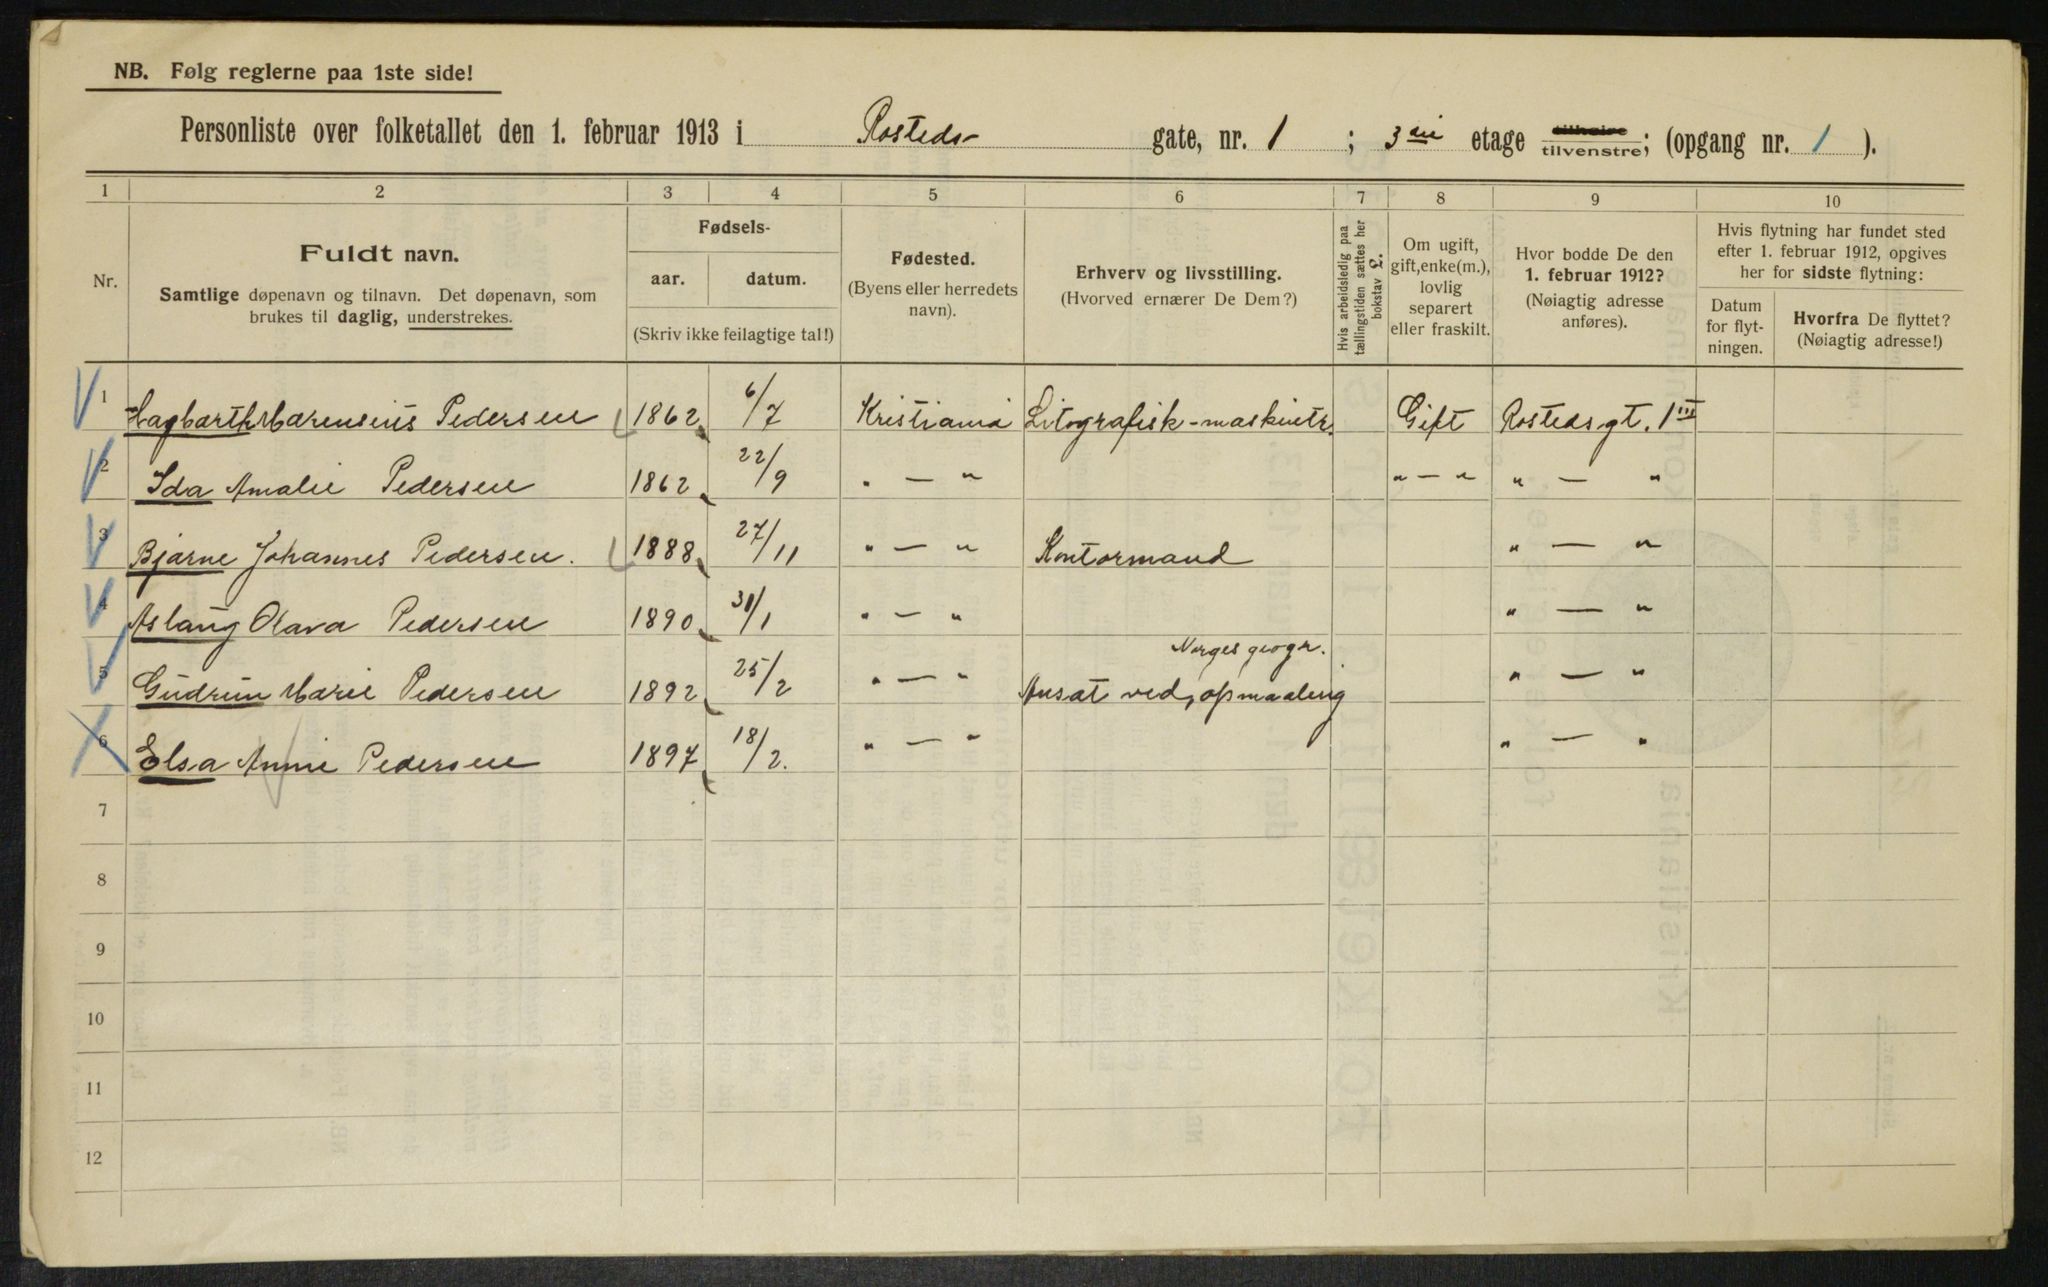 NB. Følg reglerne paa 1ste side!
Personliste over folketallet den 1. februar 1913 i Rosteds- gate, nr. 1 ; 3die etage tilhøire tilvenstre; (opgang nr. 1 ).
1 2 3 4 5 6 7 8 9 10
Nr.
Fuldt navn.
Samtlige døpenavn og tilnavn. Det døpenavn, som
brukes til daglig, understrekes.
Fødsels-
aar. datum.
(Skriv ikke feilagtige tal!)
Fødested.
(Byens eller herredets
navn).
Erhverv og livsstilling.
(Hvorved ernærer De Dem?)
Hvis arbeidsledig paa
tællingstiden sættes her
bokstav L.
Om ugift,
gift, enke(m.),
lovlig
separert
eller fraskilt.
Hvor bodde De den
1. februar 1912?
(Nøiagtig adresse
anføres).
Hvis flytning har fundet sted
efter 1. februar 1912, opgives
her for sidste flytning:
Datum
for flyt-
ningen.
Hvorfra De flyttet?
(Nøiagtig adresse!)
1 Hagbarth Marensius Pedersen 1862 6/7 Kristiania Litografisk-maskintr. Gift Rostedsgt. 1 III
2 Ida Amalie Pedersen 1862 22/9 " — " " — " " — "
3 Bjarne Johannes Pedersen. 1888 27/11 " — " Kontormand " — "
4 Aslaug Olava Pedersen 1890 31/1 " — " " — "
Norges geogr.
5 Gudrun Marie Pedersen 1892 25/2 " — " Ansat ved, opmaaling " — "
6 Elsa Annie Pedersen 1897 18/2. " — " " — "
7
8
9
10
11
12